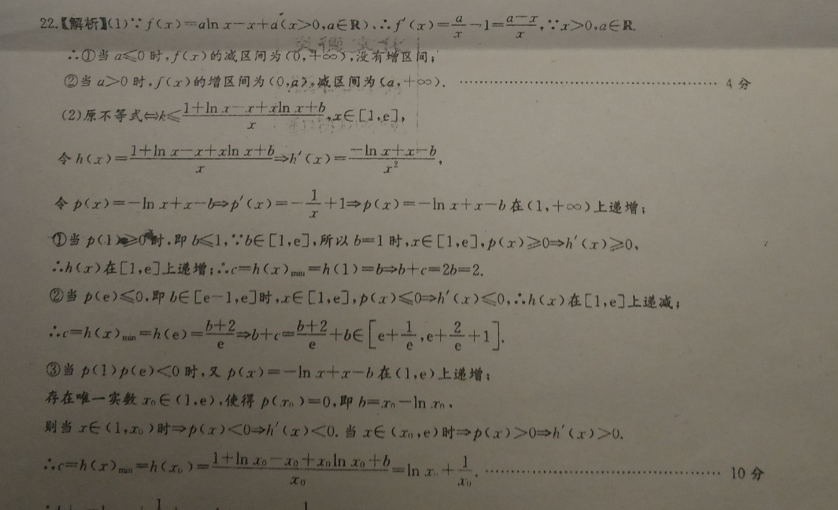 22.【解析】(1)∵f(x)=aln x-x+a(x>0,a∈R),∴f′(x)=a/x-1=(a-x)/x,∵x>0,a∈R.
∴①当a≤0时,f(x)的减区间为(0,+∞),没有增区间;
②当a>0时,f(x)的增区间为(0,a),减区间为(a,+∞). ……………………………… 4分
(2)原不等式⇔k≤(1+ln x-x+xln x+b)/x,x∈[1,e],
令h(x)=(1+ln x-x+xln x+b)/x⇒h′(x)=(-ln x+x-b)/x²,
令p(x)=-ln x+x-b⇒p′(x)=-1/x+1⇒p(x)=-ln x+x-b在(1,+∞)上递增;
①当p(1)≥0时,即b≤1,∵b∈[1,e],所以b=1时,x∈[1,e],p(x)≥0⇒h′(x)≥0,
∴h(x)在[1,e]上递增;∴c=h(x)min=h(1)=b⇒b+c=2b=2.
②当p(e)≤0,即b∈[e-1,e]时,x∈[1,e],p(x)≤0⇒h′(x)≤0,∴h(x)在[1,e]上递减;
∴c=h(x)min=h(e)=(b+2)/e⇒b+c=(b+2)/e+b∈[e+1/e,e+2/e+1].
③当p(1)p(e)<0时,又p(x)=-ln x+x-b在(1,e)上递增;
存在唯一实数x₀∈(1,e),使得p(x₀)=0,即b=x₀-ln x₀,
则当x∈(1,x₀)时⇒p(x)<0⇒h′(x)<0.当x∈(x₀,e)时⇒p(x)>0⇒h′(x)>0.
∴c=h(x)min=h(x₀)=(1+ln x₀-x₀+x₀ln x₀+b)/x₀=ln x₀+1/x₀. ……………………………… 10分